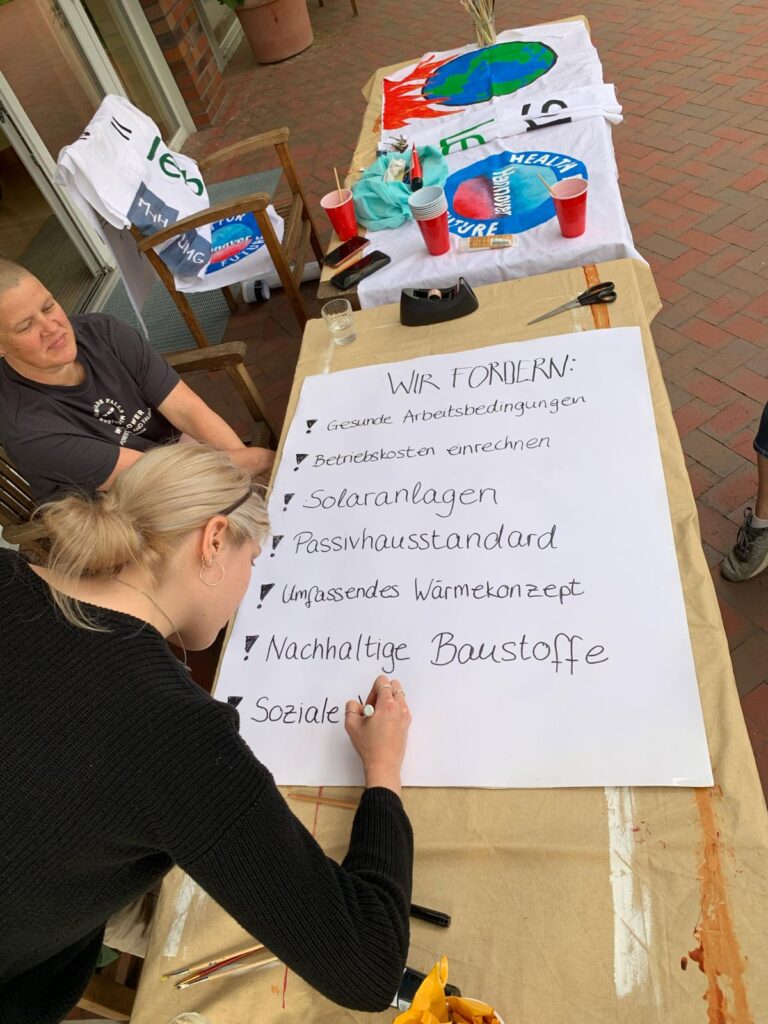 WIR FORDERN:
! Gesunde Arbeitsbedingungen
! Betriebskosten einrechnen
! Solaranlagen
! Passivhausstandard
! Umfassendes Wärmekonzept
! Nachhaltige Baustoffe
! Soziale
HEALTH
Hannover
FUTURE
MHH
UMG